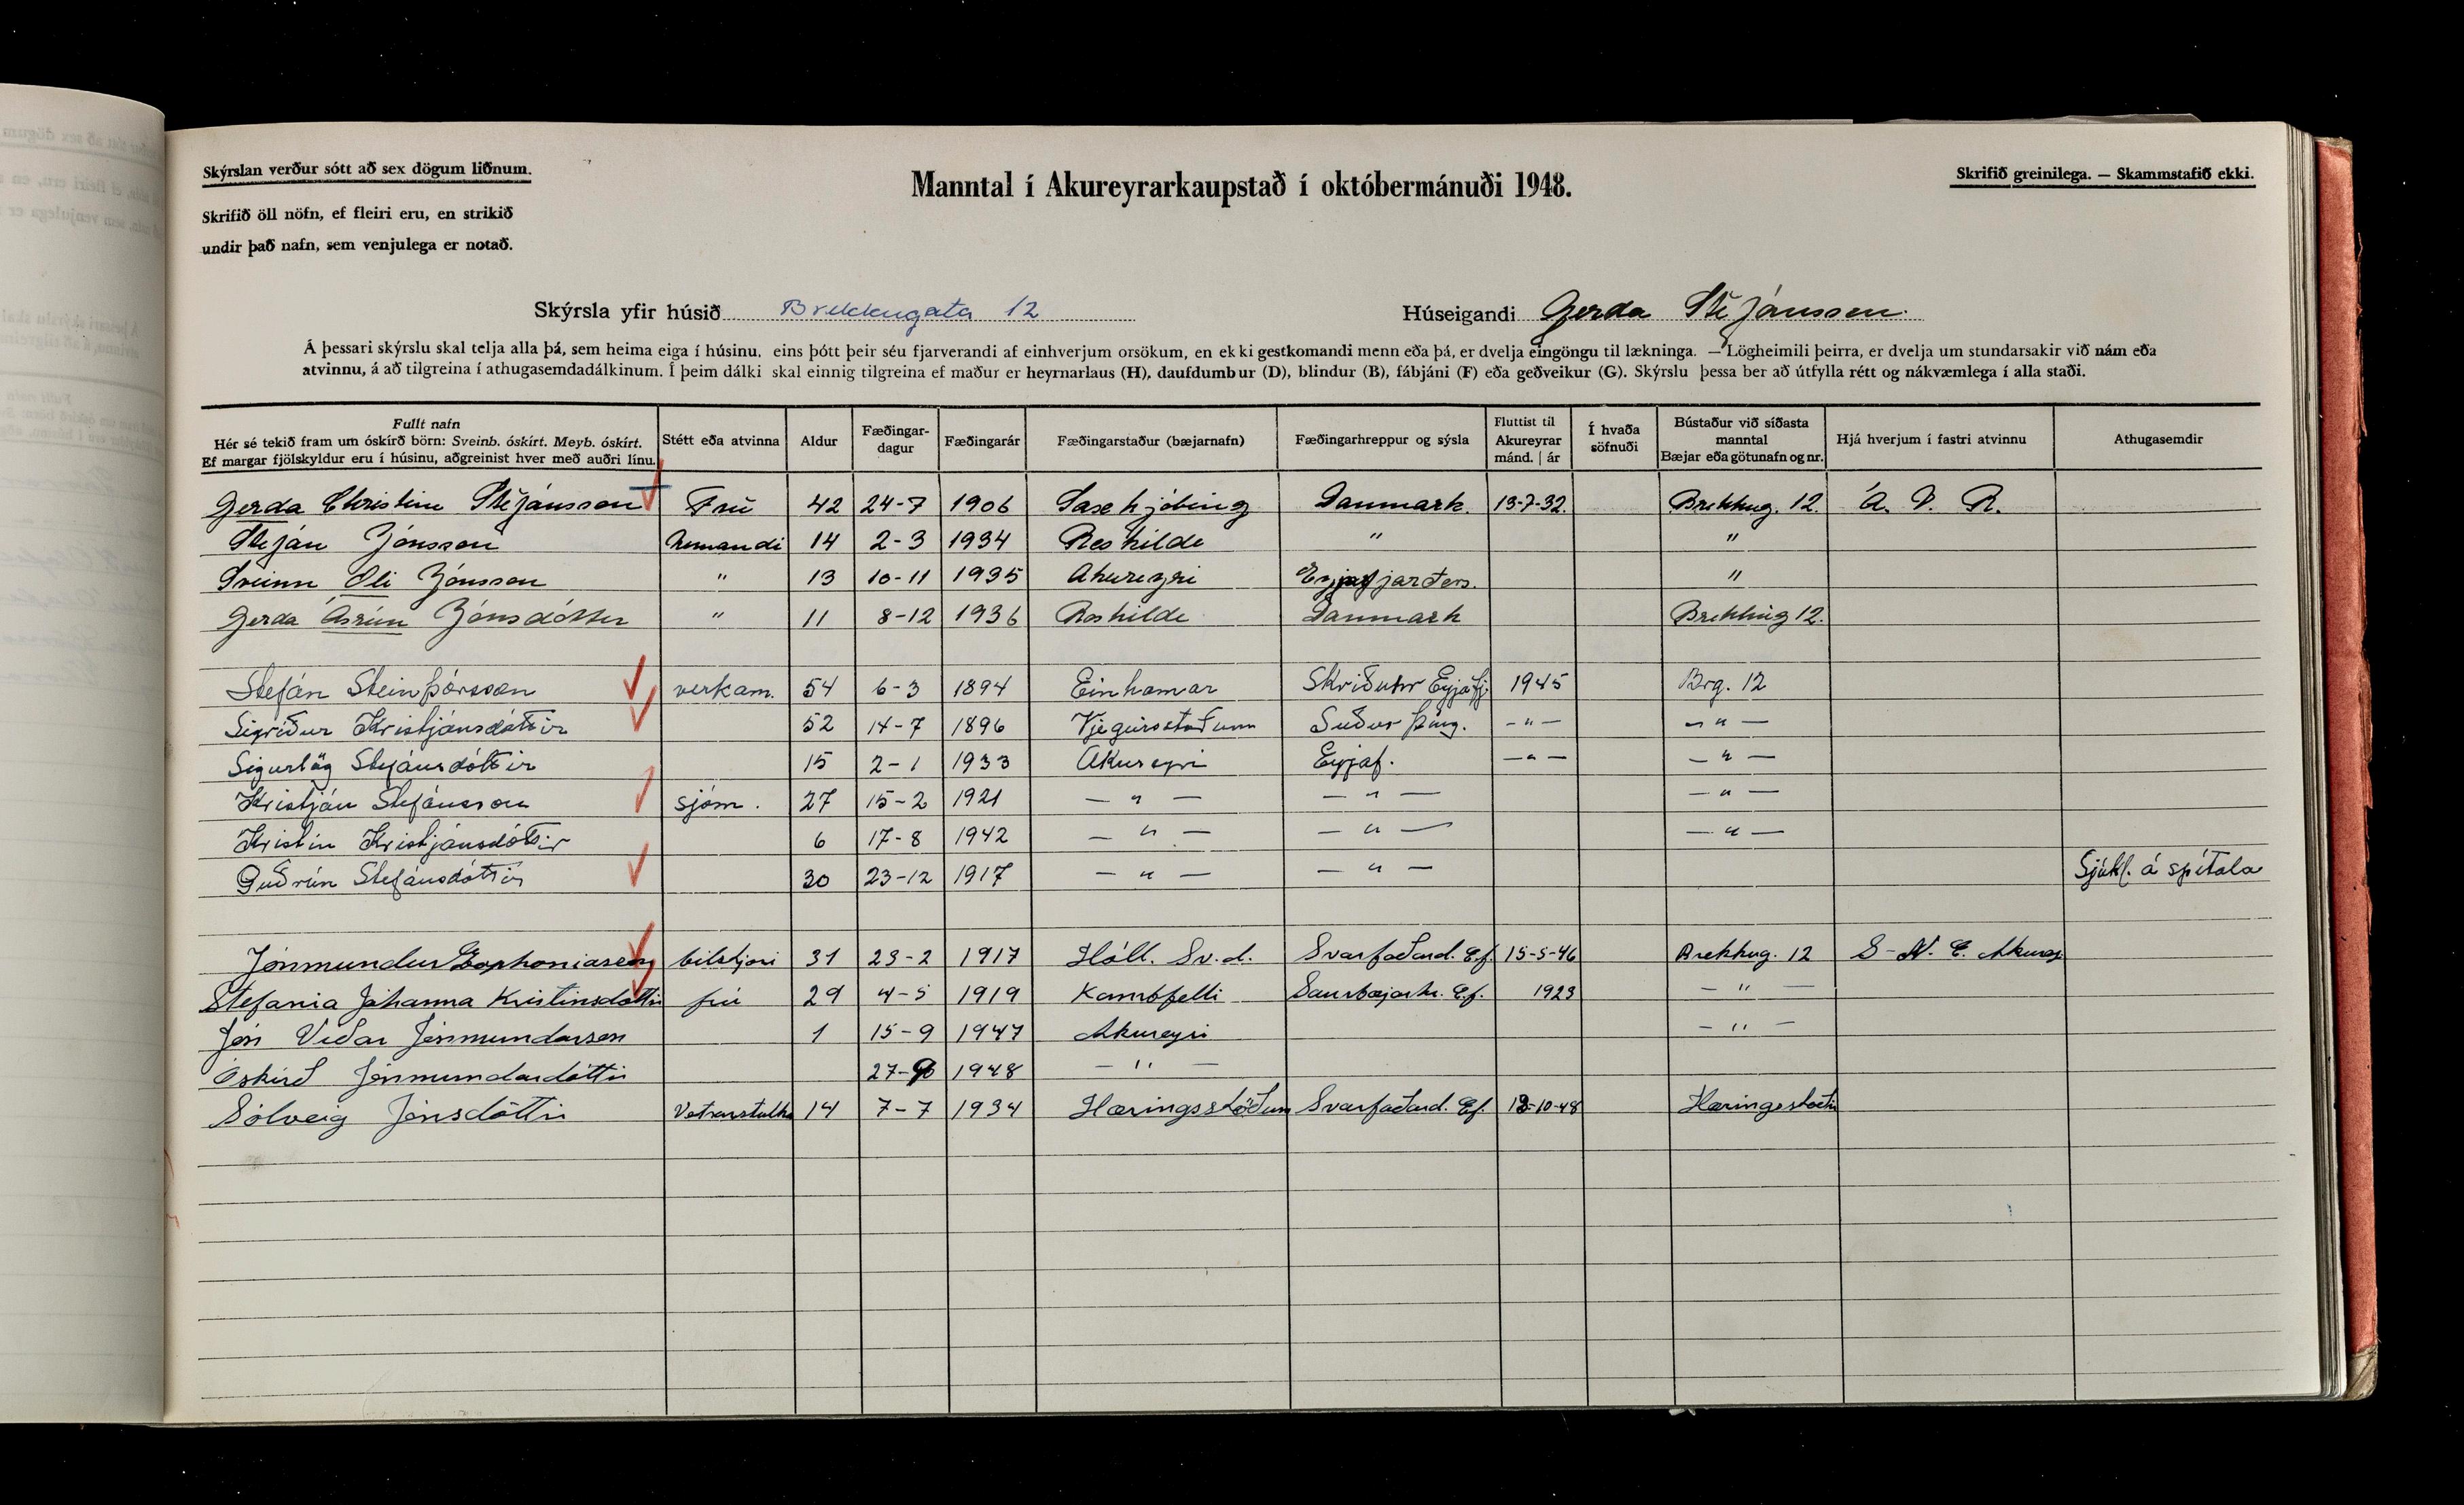 Skýrslan verður sótt að sex dögum liðnum.
Manntal í Akureyrarkaupstað í októbermánuði 1948.
Skrifið greinilega. — Skammstafið ekki.
Skrifið öll nöfn, ef fleiri eru, en strikið
undir það nafn, sem venjulega er notað.
Skýrsla yfir húsið Brekkugata 12 Húseigandi Gerda Stefánsson.
Á þessari skýrslu skal telja alla þá, sem heima eiga í húsinu, eins þótt þeir séu fjarverandi af einhverjum orsökum, en ekki gestkomandi menn eða þá, er dvelja eingöngu til lækninga. — Lögheimili þeirra, er dvelja um stundarsakir við nám eða
atvinnu, á að tilgreina í athugasemdadálkinum. Í þeim dálki skal einnig tilgreina ef maður er heyrnarlaus (H), daufdumbur (D), blindur (B), fábjáni (F) eða geðveikur (G). Skýrslu þessa ber að útfylla rétt og nákvæmlega í alla staði.
Fullt nafn
Hér sé tekið fram um óskírð börn: Sveinb. óskírt. Meyb. óskírt.
Ef margar fjölskyldur eru í húsinu, aðgreinist hver með auðri línu.
Stétt eða atvinna
Aldur
Fæðingar-
dagur
Fæðingarár
Fæðingarstaður (bæjarnafn)
Fæðingarhreppur og sýsla
Fluttist til
Akureyrar
mánd. | ár
Í hvaða
söfnuði
Bústaður við síðasta
manntal
Bæjar eða götunafn og nr.
Hjá hverjum í fastri atvinnu
Athugasemdir
Gerda Christine Stefánsson Frú 42 24-7 1906 Saxekjöbing Danmark. 13-7-32. Brekkug. 12. Á. V. R.
Stefán Jónsson Nemandi 14 2-3 1934 Roskilde " "
Sveinn Óli Jónsson " 13 10-11 1935 Akureyri Eyjafjarðers. "
Gerda Ásrún Jónsdóttir " 11 8-12 1936 Roskilde Danmark Brekkug 12.
Stefán Steinþórsson verkam. 54 6-3 1894 Einhamar Skriðuhr Eyjafj 1945 Brg. 12
Sigríður Kristjánsdóttir 52 14-7 1896 Végeirsstöðum Suður þing. -"- -"-
Sigurlög Stefánsdóttir 15 2-1 1933 Akureyri Eyjaf. -"- -"-
Kristján Stefánsson sjóm. 27 15-2 1921 -"- -"- -"-
Kristín Kristjánsdóttir 6 17-8 1942 -"- -"- -"-
Guðrún Stefánsdóttir 30 23-12 1917 -"- -"- Sjúkl. á spítala
Jónmundur Zophoníasson bílstjóri 31 23-2 1917 Hóll. Sv.d. Svarfaðard. Ef. 15-5-46 Brekkug. 12 S-N. E. Akurey
Stefania Jóhanna Kristinsdóttir frú 29 4-5 1919 Kambfelli Saurbæjarhr. Ef. 1923 -"-
Jón Viðar Jónmundarson 1 15-9 1947 Akureyri -"-
Óskírð Jónmundardóttir 27-9 1948 -"-
Sólveig Jónsdóttir Vetrarstulka 14 7-7 1934 Hæringsstöðum Svarfaðard. Ef. -10-48 Hæringsstöðu